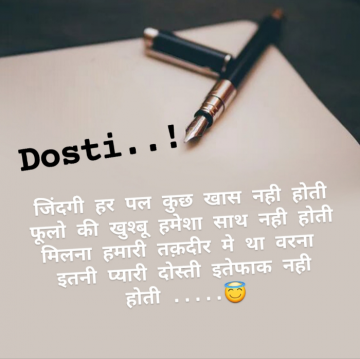 Dosti..!
जिंदगी हर पल कुछ खास नही होती
फूलो की खुश्बू हमेशा साथ नही होती
मिलना हमारी तक़दीर मे था वरना
इतनी प्यारी दोस्ती इतेफाक नही
होती .....😇